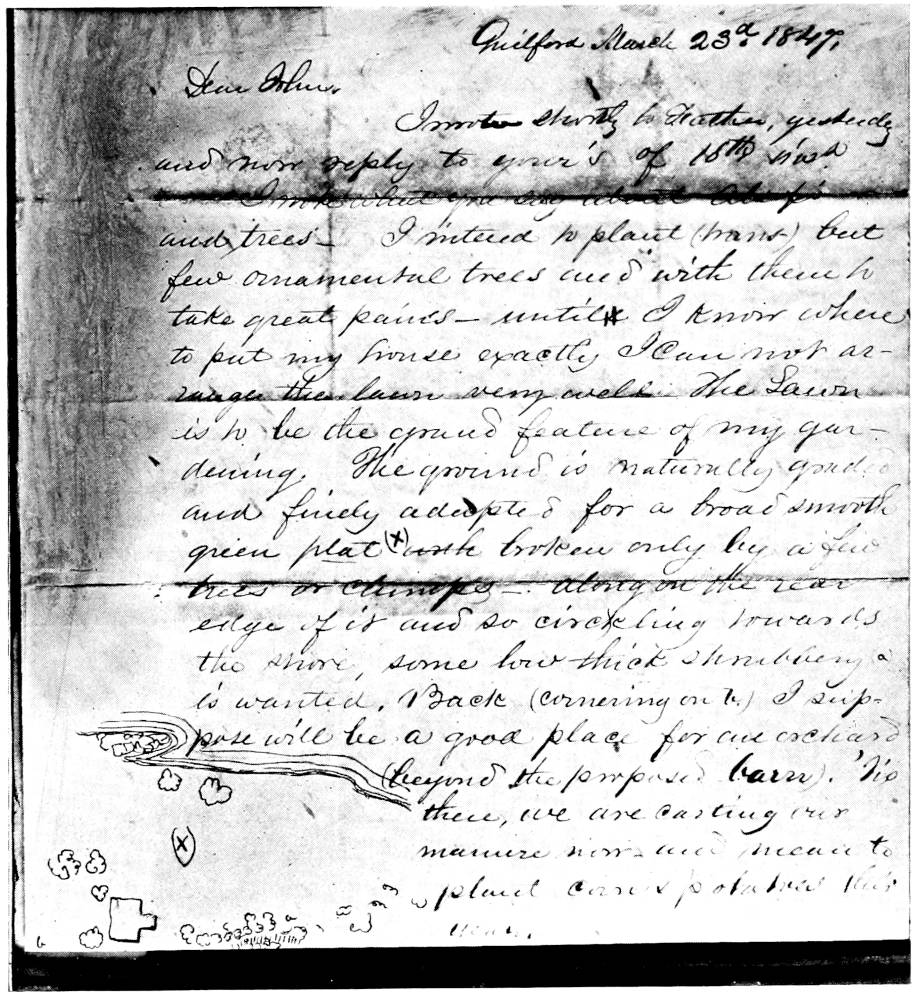 Guilford March 23d. 1847.
Dear John.
I wrote shortly to Father, yesterday
and now reply to your's of 18th inst
I note what you say about
and trees — I intend to plant (trans) but
few ornamental trees and with them to
take great pains — until I know where
to put my house exactly I can not ar-
range the lawn very well. The Lawn
is to be the grand feature of my gar-
dening. The ground is naturally graded
and finely adapted for a broad smooth
green plat (x) broken only by a few
trees or clumps — along on the rear
edge of it and so circling towards
the shore, some low thick shrubbery a
is wanted. Back (cornering on b.) I sup-
pose will be a good place for an orchard
(beyond the proposed barn). 'Tis
there, we are carting our
manure now and mean to
plant corn & potatoes this
year.
(X)
a
b